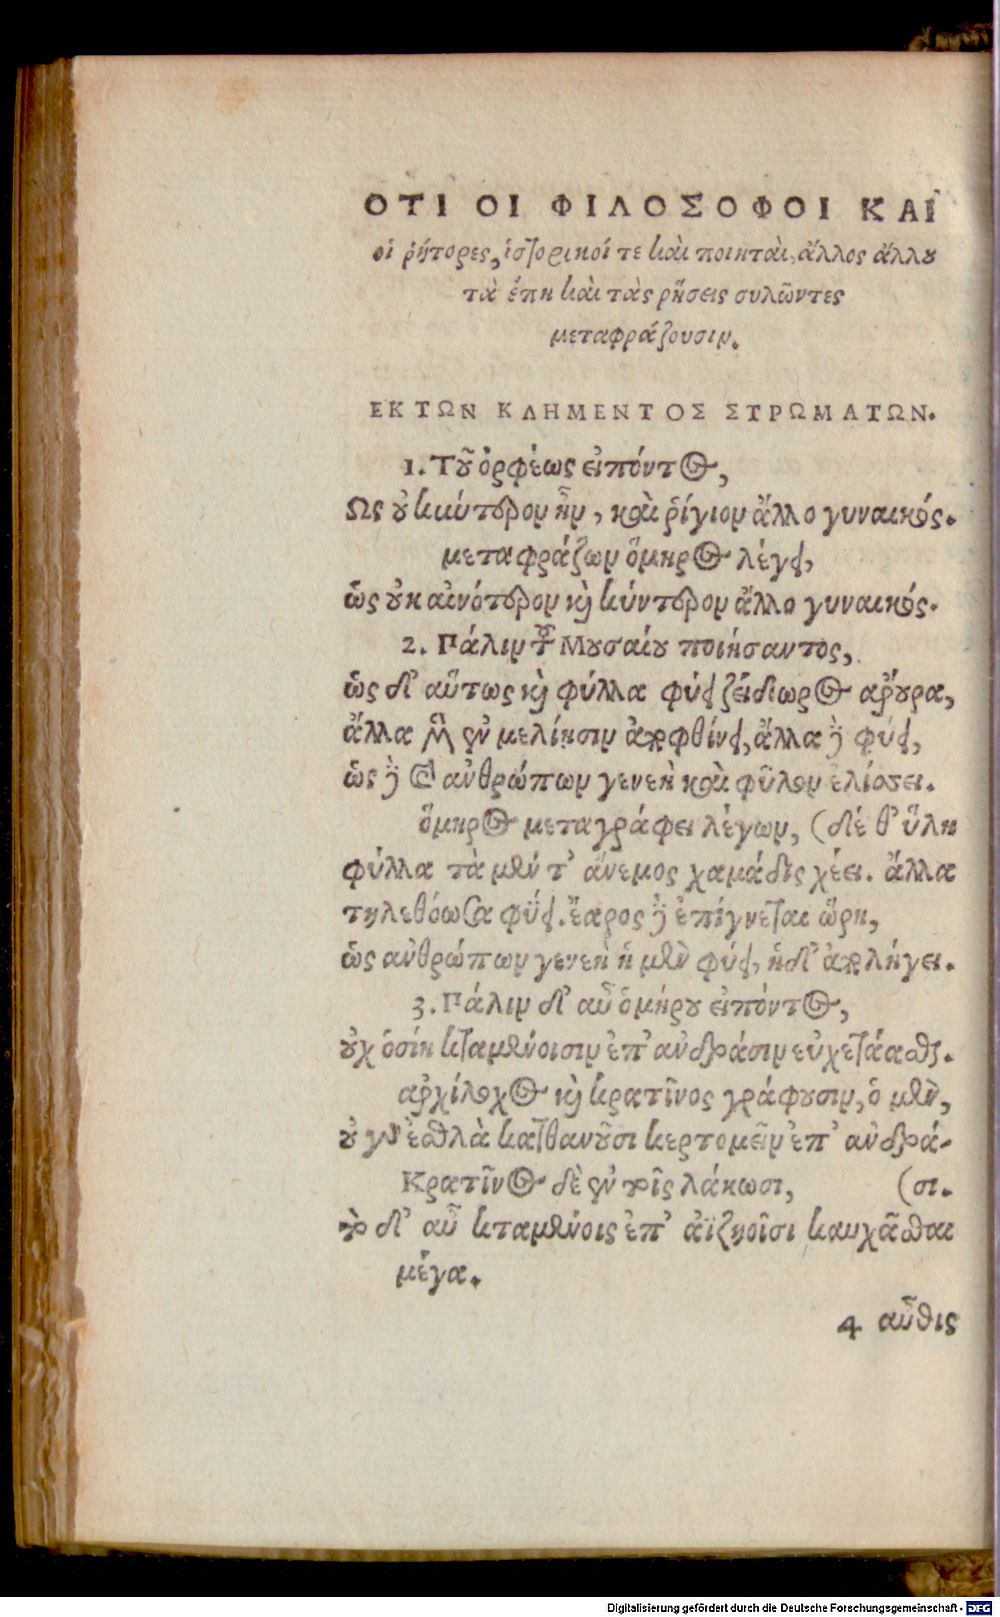 ΟΤΙ ΟΙ ΦΙΛΟΣΟΦΟΙ ΚΑΙ
οἱ ῥήτορες, ἱστορικοί τε καὶ ποιηταὶ, ἄλλος ἄλλου
τὰ ἔπη καὶ τὰς ῥήσεις συλῶντες
μεταφράζουσιν.
ΕΚ ΤΩΝ ΚΛΗΜΕΝΤΟΣ ΣΤΡΩΜΑΤΩΝ.
1. Τοῦ ὀρφέως εἰπόντος,
Ως οὐ κύντερον ἦν, καὶ ῥίγιον ἄλλο γυναικός.
μεταφράζων ὅμηρος λέγει,
ὡς οὐκ αἰνότερον καὶ κύντερον ἄλλο γυναικός.
2. Πάλιν τοῦ Μουσαίου ποιήσαντος,
ὡς δ' αὕτως καὶ φύλλα φύει ζείδωρος ἄρουρα,
ἄλλα μὲν ἐν μελίησιν ἀποφθίνει, ἄλλα δὲ φύει,
ὡς δὲ καὶ ἀνθρώπων γενεὴ καὶ φῦλον ἑλίσσει.
ὅμηρος μεταγράφει λέγων, (δέ θ' ὕλη
φύλλα τὰ μέν τ' ἄνεμος χαμάδις χέει. ἄλλα
τηλεθόωσα φύει. ἔαρος δὲ ἐπίγνεται ὥρη,
ὡς ἀνθρώπων γενεὴ ἡ μὲν φύει, ἡ δ' ἀπολήγει.
3. Πάλιν δ' αὖ ὁμήρου εἰπόντος,
οὐχ ὁσίη κταμένοισιν ἐπ' ἀνδράσιν εὐχετάασθαι.
ἀρχίλοχος καὶ κρατῖνος γράφουσιν, ὁ μὲν,
οὐ γὰρ ἐσθλὰ κατθανοῦσι κερτομεῖν ἐπ' ἀνδρά-
Κρατῖνος δὲ ἐν τοῖς λάκωσι, (σι.
δ' αὖ κταμένοις ἐπ' ἀϊζηοῖσι καυχᾶσθαι
μέγα.
4 αὖθις
Digitalisierung gefördert durch die Deutsche Forschungsgemeinschaft - DFG